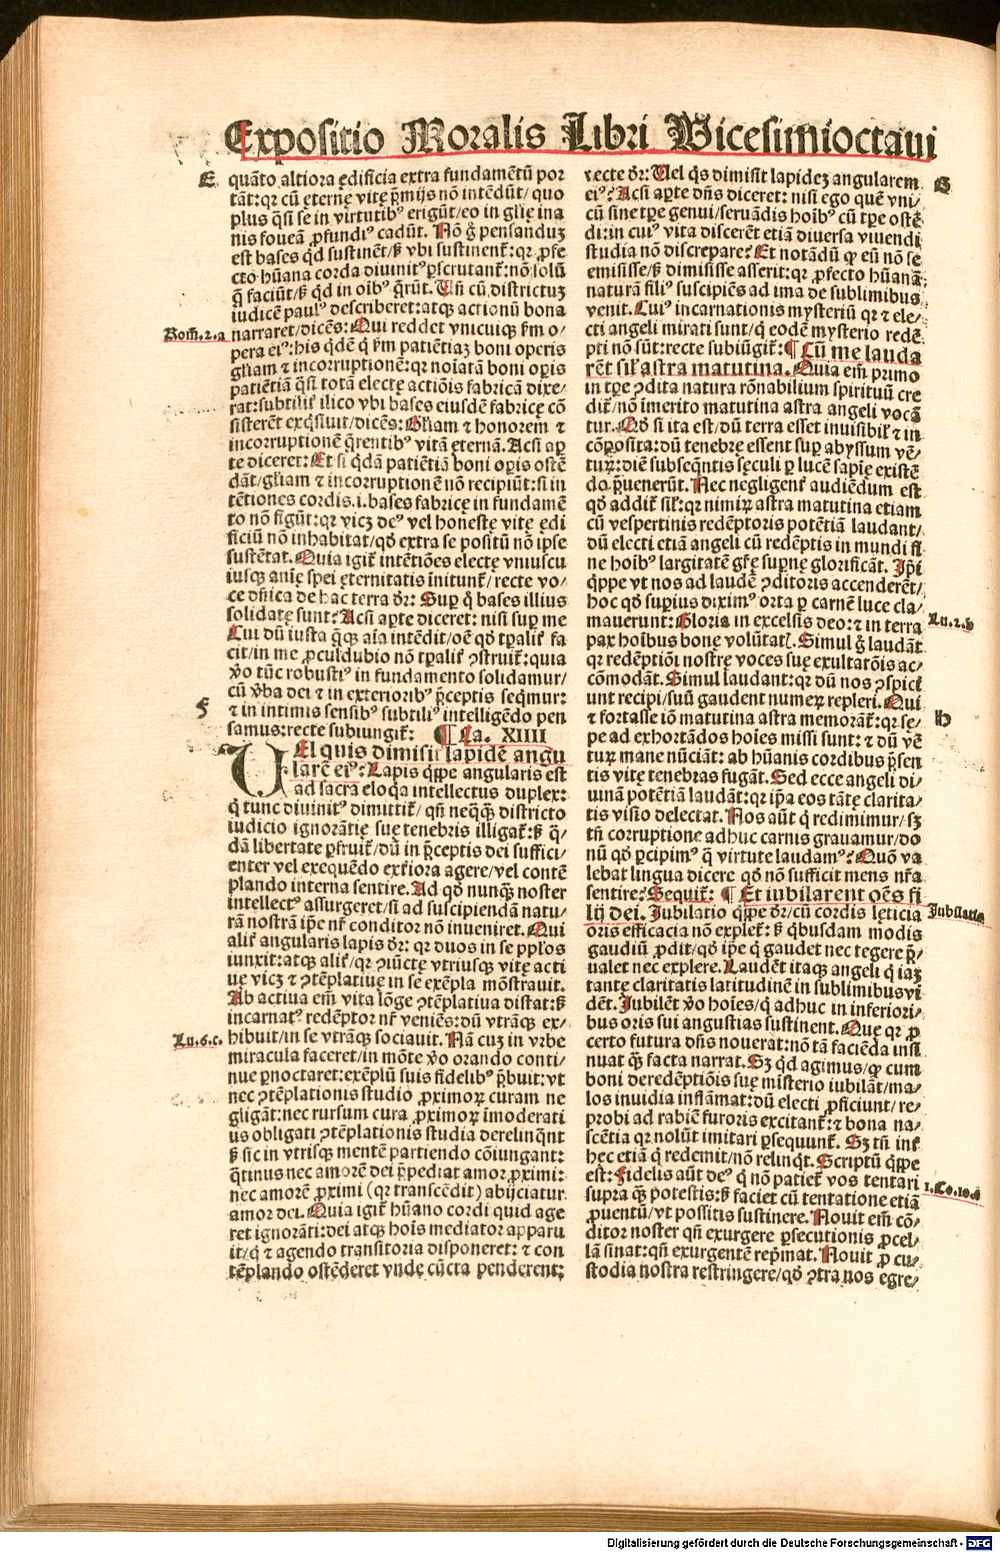 Expositio Moralis Libri Vicesimioctaui
E
quāto altiora ędificia extra fundamētū por
tāt: qꝛ cū ęternę vitę p̄mijs nō intēdūt/ quo
plus q̄si se in virtutibꝰ erigūt/ eo in glīę ina
nis foueā ꝓfundiꝰ cadūt. Nō ḡ pensanduꝫ
est bases qd̄ sustinēt/ sꝫ vbi sustinent̄: qꝛ ꝓfe
cto hūana corda diuinitꝰ ꝑscrutant̄: nō solū
q̄ faciūt/ sꝫ qd̄ in oībꝰ q̄rūt. Vñ cū districtuꝫ
iudicē paulꝰ describeret: atqꝫ actionū bona
Rom̄.2.a
narraret/ dicēs: Qui reddet vnicuiqꝫ ẜm o⸗
pera eiꝰ: his qdē q̄ ẜm patiētiaꝫ boni operis
gl̄iam ⁊ incorruptionē: qꝛ noīatā boni oꝑis
patiētiā q̄si totā electę actiōis fabricā dixe⸗
rat: subtilit̄ ilico vbi bases eiusdē fabricę cō
sisterēt exq̄siuit/ dicēs: Gl̄iam ⁊ honorem ⁊
incorruptionē q̄rentibꝰ vitā ęternā. Acsi aꝑ
te diceret: Et si qdā patiētiā boni oꝑis ostē
dāt/ gl̄iam ⁊ incorruptionē nō recipiūt: si in
tētiones cordis .i. bases fabricę in fundamē
to nō figūt: qꝛ vicꝫ deꝰ vel honestę vitę ędi
ficiū nō inhabitat/ qd̄ extra se positū nō ipse
sustētat. Quia igit̄ intētiōes electę vniuscu
iusqꝫ anię spei ęternitatis īnitunt̄/ recte vo⸗
ce dn̄ica de hac terra dr̄: Suꝑ q̄ bases illius
solidatę sunt: Acsi aꝑte diceret: nisi suꝑ me
Cui dū iusta q̄qꝫ aīa intēdit/ oē qd̄ tꝑalit̄ fa
cit/ in me ꝓculdubio nō tꝑalit̄ ꝯstruit̄: quia
ꝟo tūc robustiꝰ in fundamento solidamur/
cū ꝟba dei ⁊ in exterioribꝰ p̄ceptis seqmur:
F
⁊ in intimis sensibꝰ subtiliꝰ intelligēdo pen
samus: recte subiungit̄: ¶ Ca. XIIII
VEl quis dimisit lapidē angu
larē eiꝰ: Lapis qppe angularis est
ad sacra eloqa intellectus duplex:
q̄ tunc diuinitꝰ dimittit̄/ qn̄ neqq̄ districto
iudicio ignorātię suę tenebris illigat̄: sꝫ q̄⸗
dā libertate ꝑfruit̄/ dū in p̄ceptis dei suffici⸗
enter vel exequēdo ext̄iora agere/ vel contē
plando interna sentire. Ad qd̄ nunqꝫ noster
intellectꝰ assurgeret/ si ad suscipiendā natu⸗
rā nostrā ip̄e nr̄ conditor nō inueniret. Qui
alit̄ angularis lapis dr̄: qꝛ duos in se ppl̄os
iunxit: atqꝫ alit̄/ qꝛ ꝯiūctę vtriusqꝫ vitę acti
uę vicꝫ ⁊ ꝯtēplatiuę in se exēpla mōstrauit.
Ab actiua em̄ vita lōge ꝯtēplatiua distat: sꝫ
incarnatꝰ redēptor nr̄ veniēs: dū vtrāqꝫ ex⸗
Lu.6.c.
hibuit/ in se vtrāqꝫ sociauit. Nā cuꝫ in vrbe
miracula faceret/ in mōte ꝟo orando conti⸗
nue ꝑnoctaret: exēplū suis fidelibꝰ p̄buit: vt
nec ꝯtēplationis studio ꝓximoꝝ curam ne
gligāt: nec rursum cura ꝓximoꝝ īmoderati
us obligati ꝯtēplationis studia derelinqnt
sꝫ sic in vtrisqꝫ mentē partiendo cōiungant:
q̄tinus nec amorē dei p̄pediat amor ꝓximi:
nec amorē ꝓximi (qꝛ transcēdit) abijciatur
amor dei. Quia igit̄ hūano cordi quid age
ret ignorāti: dei atqꝫ hoīs mediator apparu
it/ q̄ ⁊ agendo transitoria disponeret: ⁊ con
tēplando ostēderet vnde cūcta penderent:
recte dr̄: Vel qs dimisit lapideꝫ angularem
G
eiꝰ? Acsi aꝑte dn̄s diceret: nisi ego quē vni⸗
cū sine tꝑe genui/ seruādis hoībꝰ cū tꝑe ostē⸗
di: in cuiꝰ vita discerēt etiā diuersa viuendi
studia nō discrepare? Et notādū ꝙ eū nō se
emisisse/ sꝫ dimisisse asserit: qꝛ ꝓfecto hūanā
naturā filiꝰ suscipiēs ad ima de sublimibus
venit. Cuiꝰ incarnationis mysteriū qꝛ ⁊ ele⸗
cti angeli mirati sunt/ q̄ eodē mysterio redē
pti nō sūt: recte subiūgit̄: ¶ Cū me lauda
rēt sil̄ astra matutina. Quia em̄ primo
in tꝑe ꝯdita natura rōnabilium spirituū cre
dit̄/ nō īmerito matutina astra angeli vocā
tur. Qd̄ si ita est/ dū terra esset inuisibil̄ ⁊ in
cōposita: dū tenebrę essent suꝑ abyssum vē⸗
tuꝝ: diē subseqntis sęculi ꝑ lucē sapię existē
do p̄uenerūt. Nec negligent̄ audiēdum est
qd̄ addit̄ sil̄: qꝛ nimiꝝ astra matutina etiam
cū vespertinis redēptoris potētiā laudant/
dū electi etiā angeli cū redēptis in mundi fi
ne hoībꝰ largitatē gr̄ę suꝑnę glorificāt. Ip̄i
qppe vt nos ad laudē ꝯditoris accenderēt/
hoc qd̄ suꝑius diximꝰ orta ꝑ carnē luce cla⸗
mauerunt: Gloria in excelsis deo: ⁊ in terra
Lu.2.b
pax hoībus bonę volūtatꝭ. Simul ḡ laudāt
qꝛ redēptiōi nostrę voces suę exultatōis ac⸗
cōmodāt. Simul laudant: qꝛ dū nos ꝯspicī
unt recipi/ suū gaudent numeꝝ repleri. Qui
H
⁊ fortasse iō matutina astra memorāt̄: qꝛ sę⸗
pe ad exhortādos hoīes missi sunt: ⁊ dū vē
tuꝝ mane nūciāt: ab hūanis cordibus p̄sen
tis vitę tenebras fugāt. Sed ecce angeli di⸗
uinā potētiā laudāt: qꝛ ip̄a eos tātę clarita⸗
tis visio delectat. Nos aūt q̄ redimimur/ sꝫ
tn̄ corruptione adhuc carnis grauamur/ do
nū qd̄ ꝑcipimꝰ q̄ virtute laudamꝰ? Quō va
lebat lingua dicere qd̄ nō sufficit mens nr̄a
sentire? Sequit̄: ¶ Et iubilarent oēs fi
lij dei. Jubilatio qppe dr̄/ cū cordis lęticia
Jubilatio
oris efficacia nō explet̄: sꝫ qbusdam modis
gaudiū ꝓdit/ qd̄ ip̄e q̄ gaudet nec tegere p̄⸗
ualet nec explere. Laudēt itaqꝫ angeli q̄ iaꝫ
tantę claritatis latitudinē in sublimibus vi
dēt. Jubilēt ꝟo hoīes/ q̄ adhuc in inferiori⸗
bus oris sui angustias sustinent. Que qꝛ ꝓ
certo futura dn̄s nouerat: nō tā faciēda insi
nuat qꝫ facta narrat. Sꝫ qd̄ agimus/ ꝙ cum
boni de redēptiōis suę misterio iubilāt/ ma⸗
los inuidia inflāmat: dū electi ꝓficiunt/ re⸗
probi ad rabiē furoris excitant̄: ⁊ bona na⸗
scētia qꝛ nolūt imitari ꝑsequunt̄. Sꝫ tn̄ int̄
hec etiā q̄ redemit/ nō relinqt. Scriptū qppe
est: Fidelis aūt deꝰ q̄ nō patiet̄ vos tentari
1.Co.10.c
supra qꝫ potestis: sꝫ faciet cū tentatione etiā
ꝓuentū/ vt possitis sustinere. Nouit em̄ cō⸗
ditor noster qn̄ exurgere ꝑsecutionis ꝓcel⸗
lā sinat: qn̄ exurgentē rep̄mat. Nouit ꝓ cu⸗
stodia nostra restringere/ qd̄ ꝯtra nos egre⸗
Digitalisierung gefördert durch die Deutsche Forschungsgemeinschaft - DFG